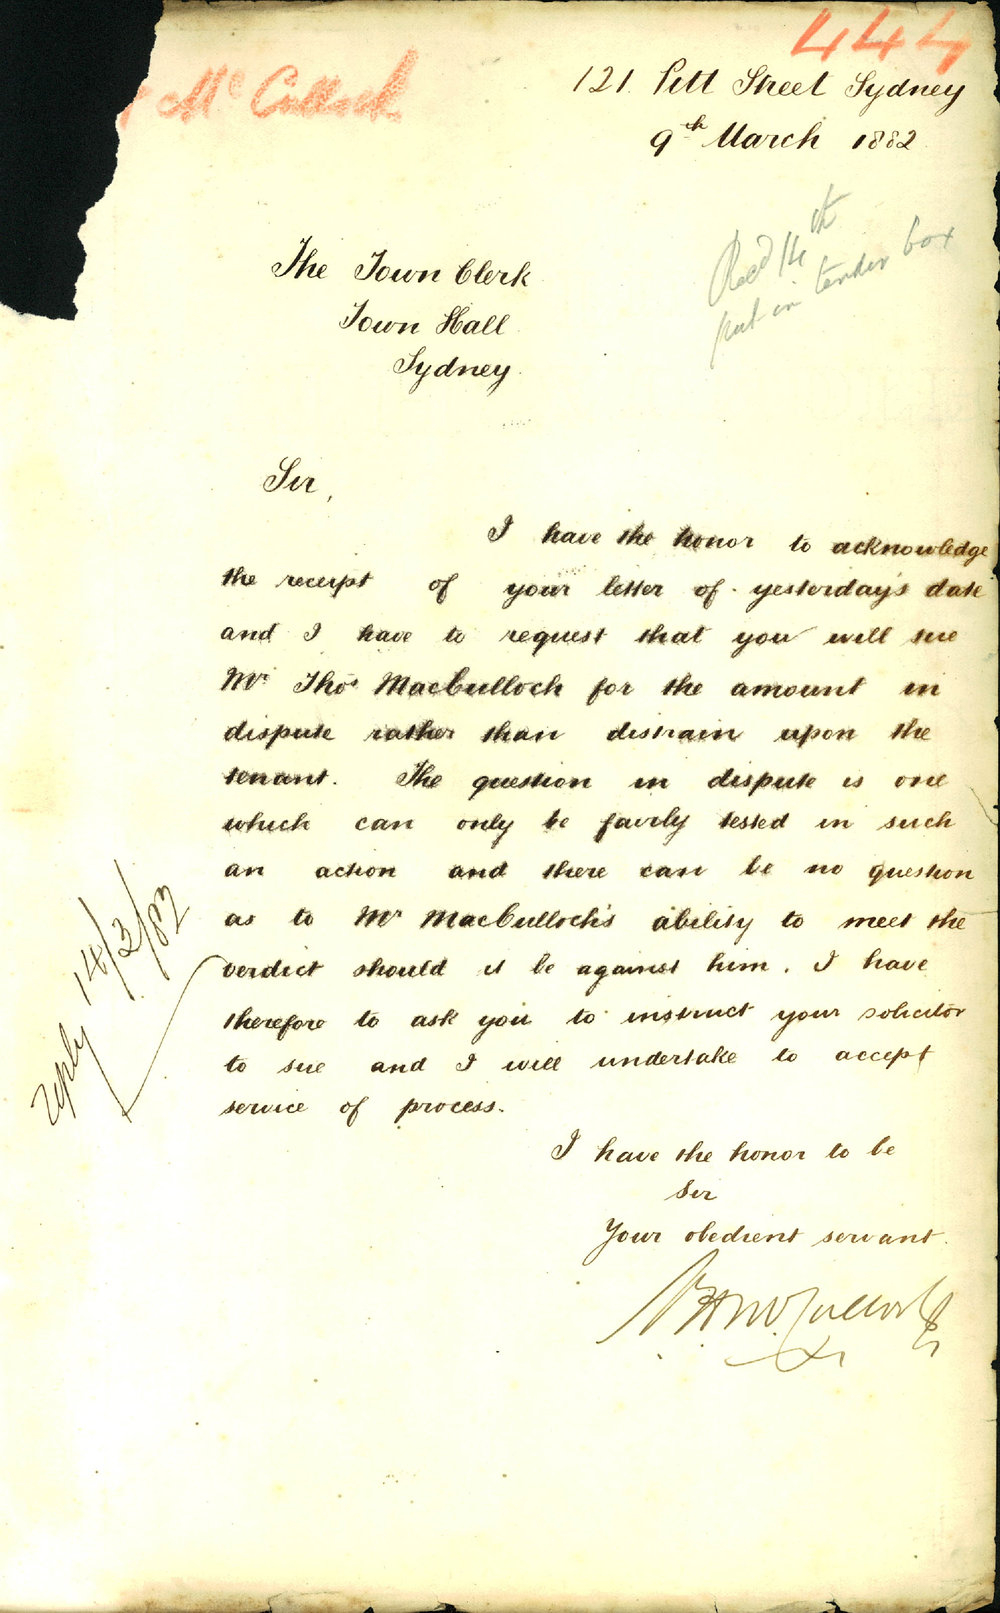 444
McCulloch
121 Pitt Street Sydney
9th March 1882
Recd 14th
put in tender box
The Town Clerk
Town Hall
Sydney
Sir,
I have the honor to acknowledge
the receipt of your letter of yesterday's date
and I have to request that you will sue
Mr. Thos. MacCulloch for the amount in
dispute rather than distrain upon the
tenant. The question in dispute is one
which can only be fairly tested in such
an action and there can be no question
as to Mr MacCulloch's ability to meet the
verdict should it be against him. I have
therefore to ask you to instruct your solicitor
to sue and I will undertake to accept
service of process.
reply 14/3/82
I have the honor to be
Sir
Your obedient servant.
McCulloch